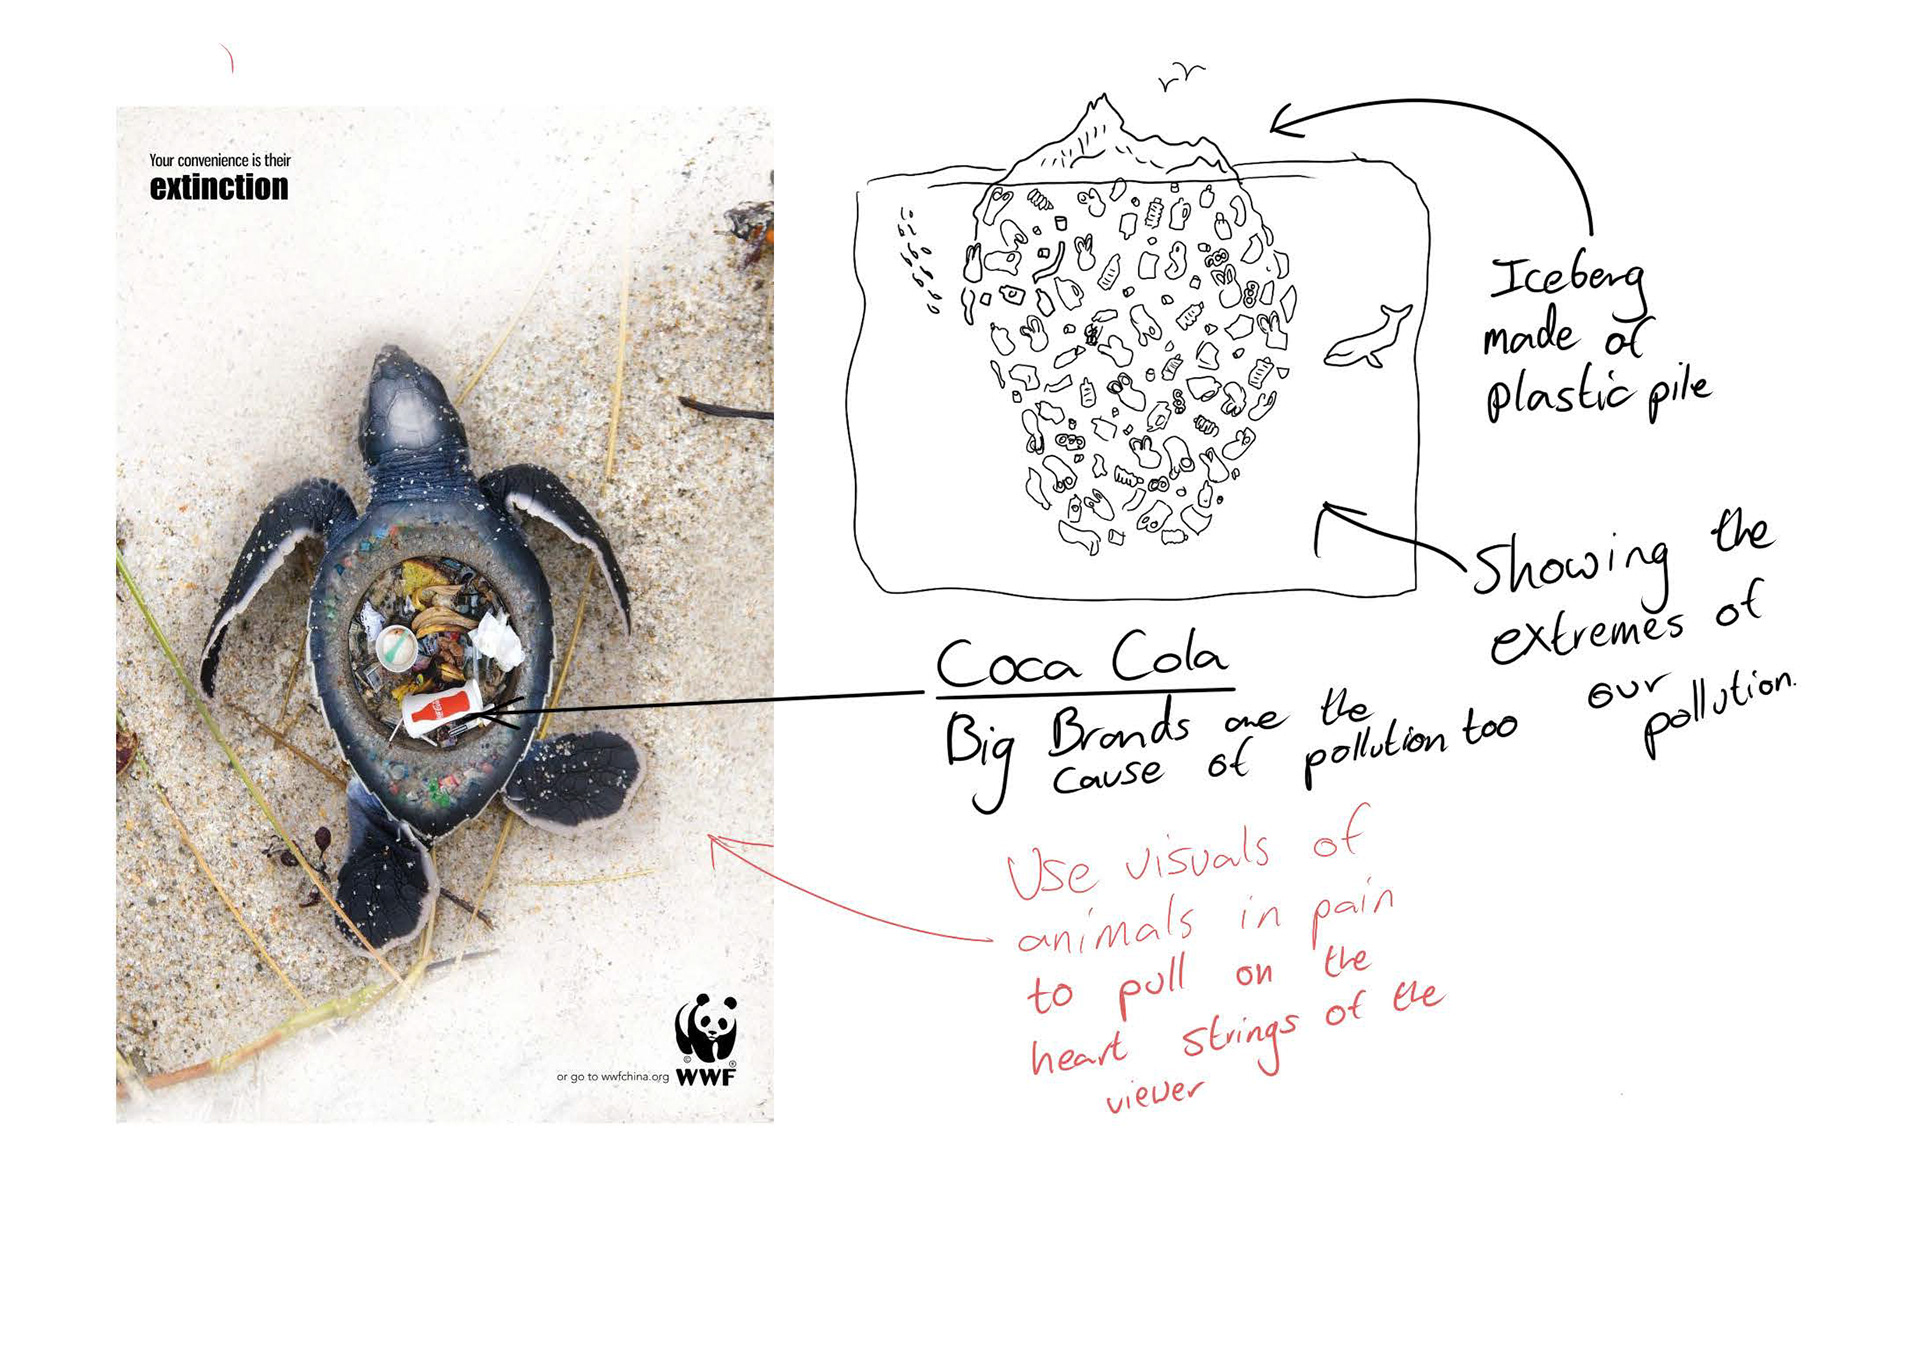 Your convenience is their
extinction
or go to wwfchina.org
WWF
Iceberg
made of
plastic pile
Showing the
extremes of
our
pollution.
Coca Cola
Big Brands are the
cause of pollution too
Use visuals of
animals in pain
to pull on the
heart strings of the
viewer